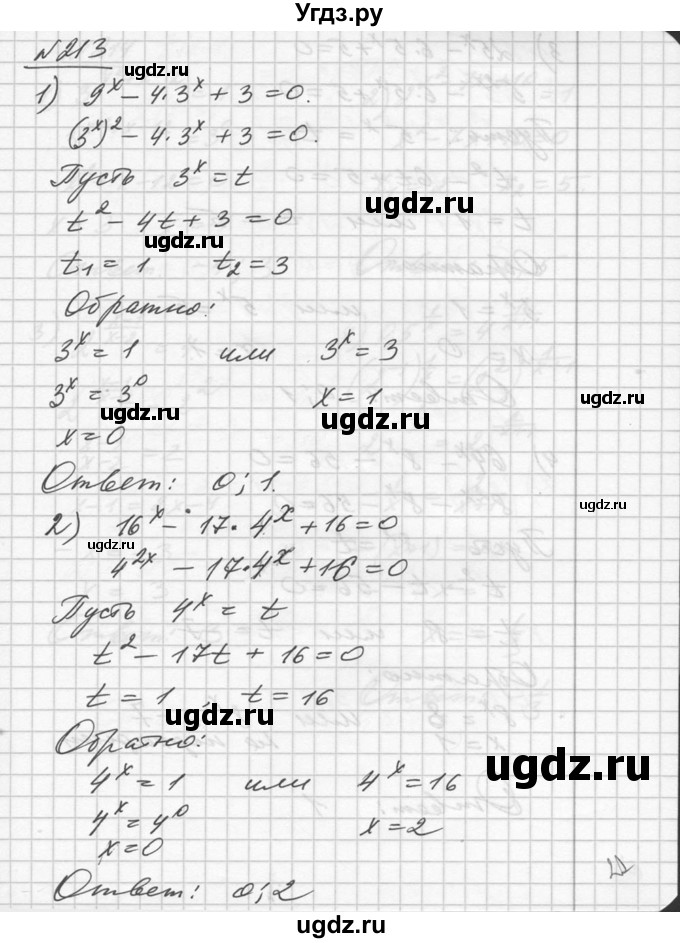 Угдз.ру
№213
ugdz.ru
1) 9^x − 4·3^x + 3 = 0.
(3^x)^2 − 4·3^x + 3 = 0.
Пусть 3^x = t
ugdz.ru
ugdz.ru
t^2 − 4t + 3 = 0
ugdz.ru
t₁ = 1 t₂ = 3
Обратно:
3^x = 1 или 3^x = 3
3^x = 3^0 x = 1
ugdz.ru
ugdz.ru ugdz.ru
x = 0
Ответ: 0; 1.
ugdz.ru
2) 16^x − 17·4^x + 16 = 0
ugdz.ru
4^{2x} − 17·4^x + 16 = 0
Пусть 4^x = t
t^2 − 17t + 16 = 0
t = 1, t = 16
ugdz.ru
Обратно:
ugdz.ru
4^x = 1 или 4^x = 16
4^x = 4^0 x = 2
x = 0
Ответ: 0; 2
ugdz.ru
ugdz.ru